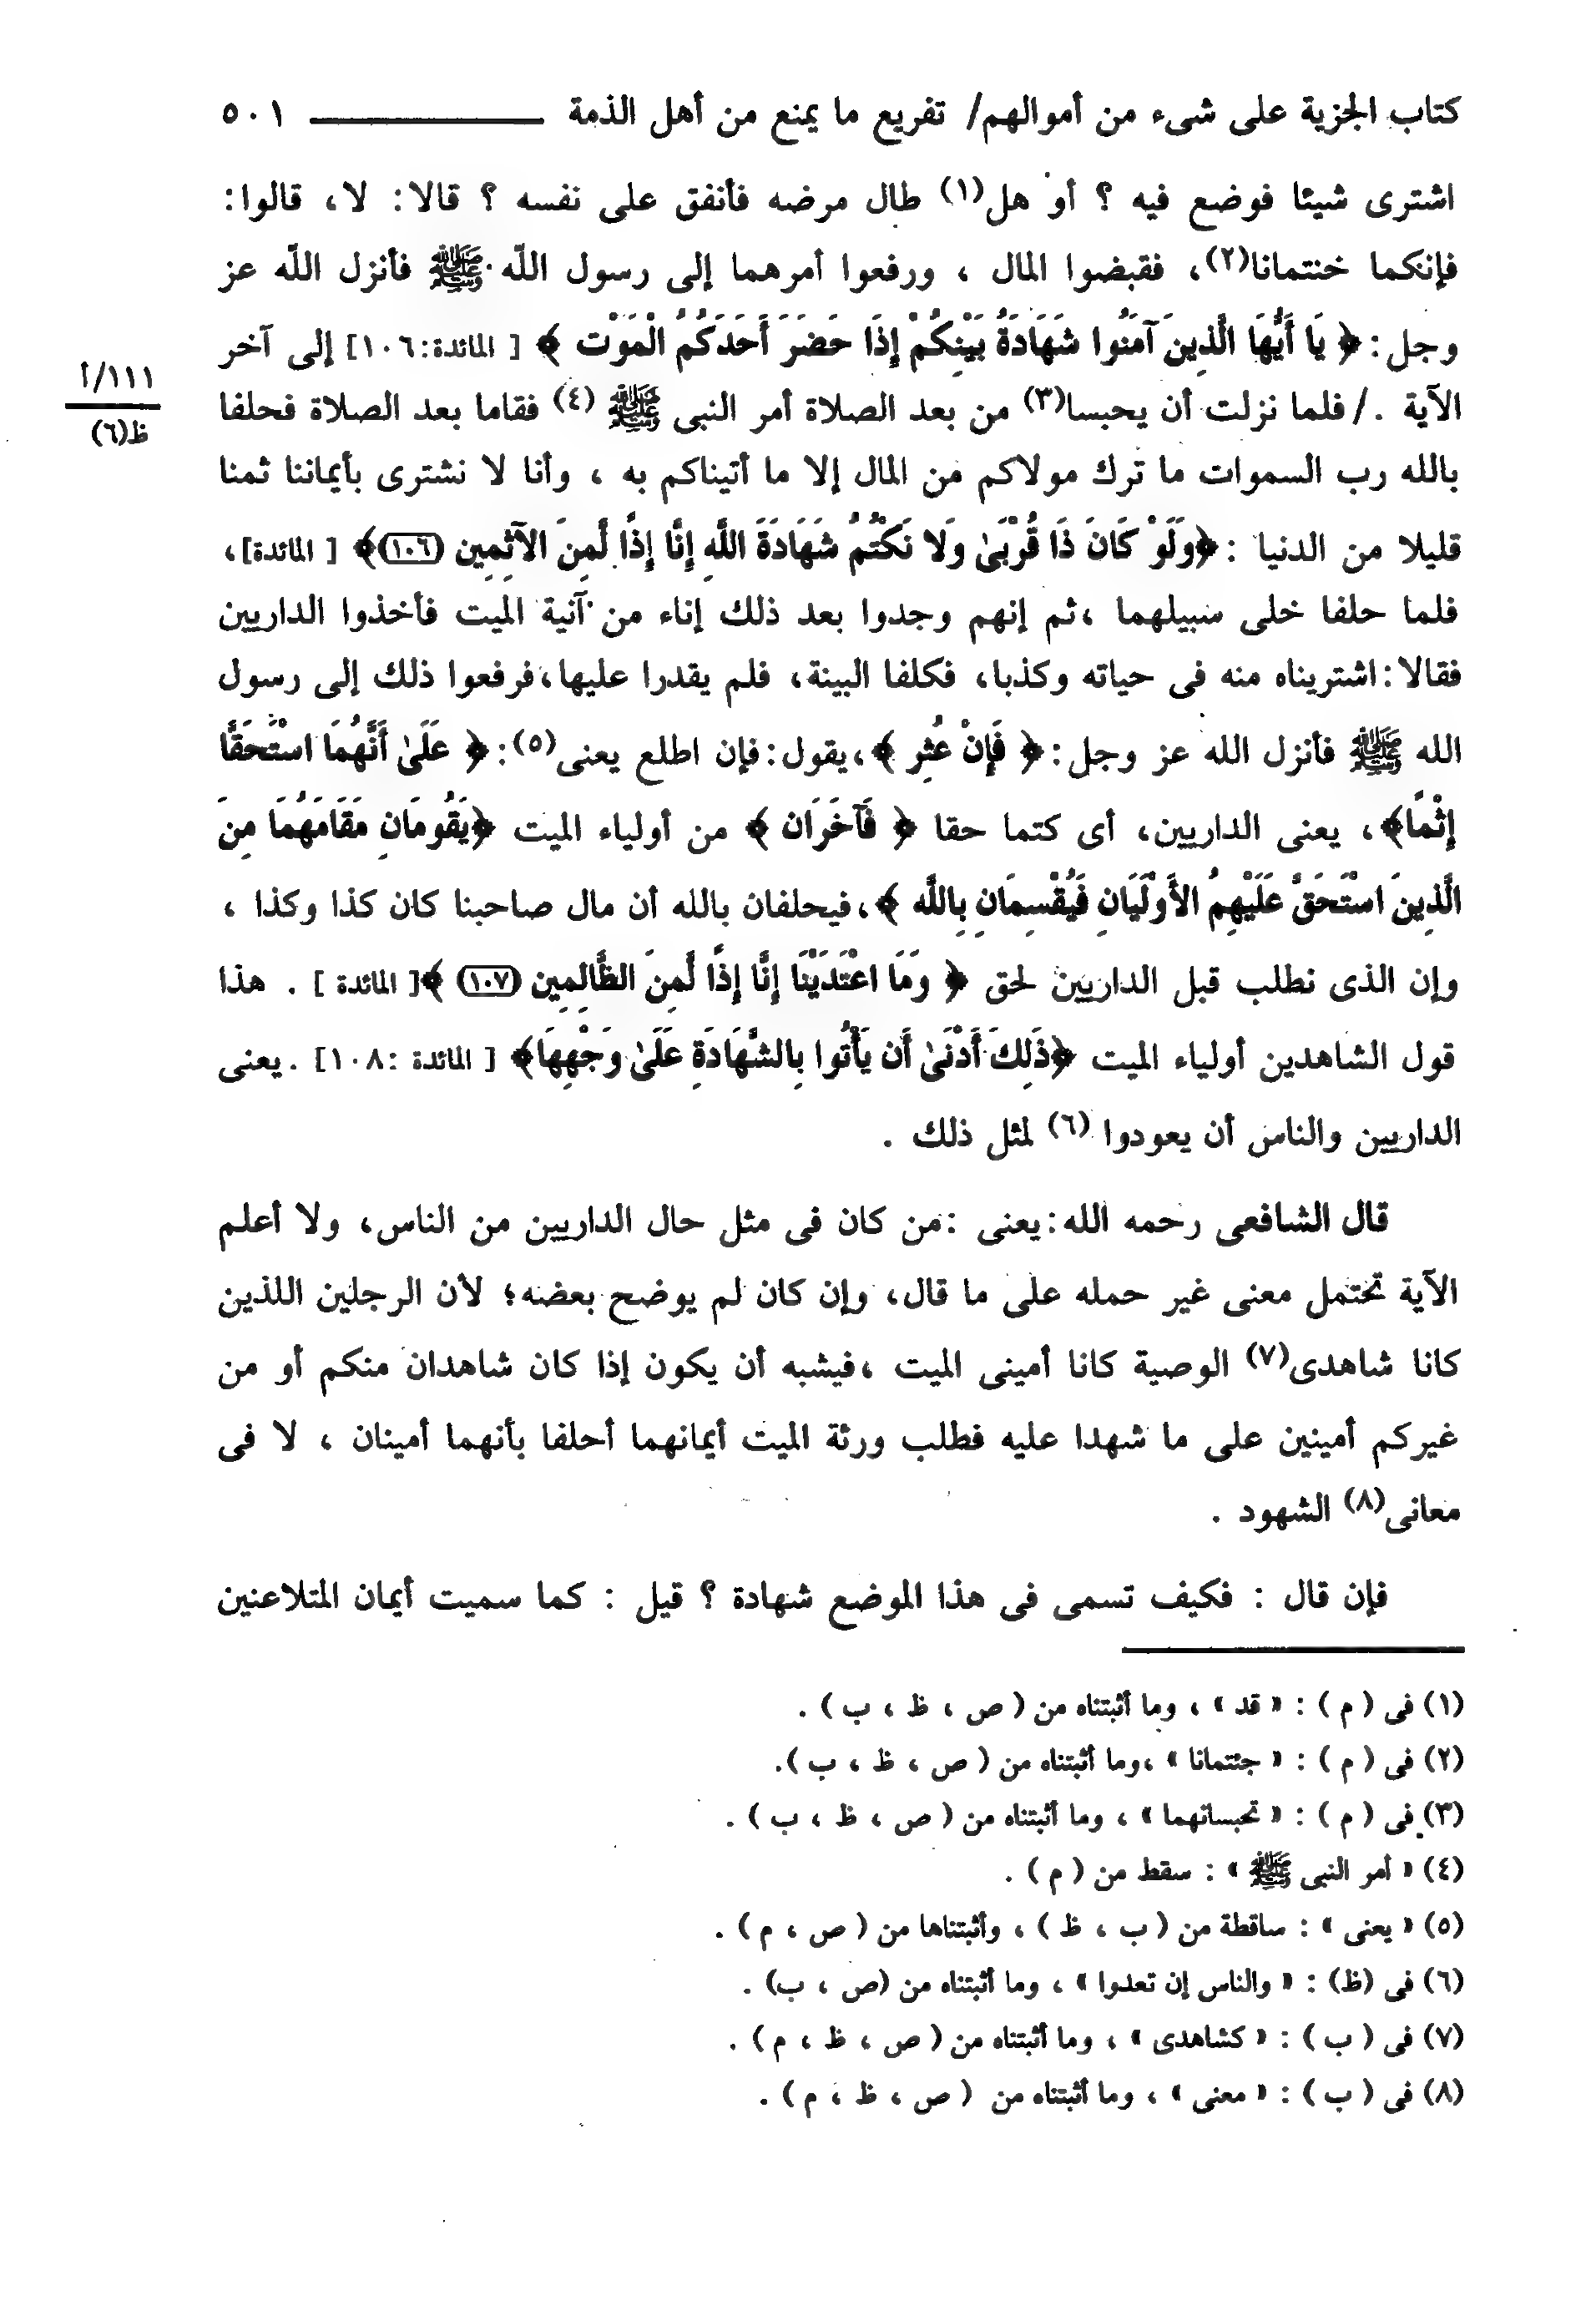 كتاب الجزية على شىء من أموالهم/ تفريع ما يمنع من أهل الذمة ــــــــــ ٥٠١
اشترى شيئا فوضع فيه ؟ أو هل(١) طال مرضه فأنفق على نفسه ؟ قالا: لا، قالوا:
فإنكما خنتمانا(٢)، فقبضوا المال ، ورفعوا أمرهما إلى رسول اللّه ﷺ فأنزل اللّه عز
وجل: ﴿ يَا أَيُّهَا الَّذِينَ آمَنُوا شَهَادَةُ بَيْنِكُمْ إِذَا حَضَرَ أَحَدَكُمُ الْمَوْت ﴾ [ المائدة:١٠٦] إلى آخر
الآية ./ فلما نزلت أن يحبسا(٣) من بعد الصلاة أمر النبى ﷺ (٤) فقاما بعد الصلاة فحلفا
١١١/أ
ظ(٦)
بالله رب السموات ما ترك مولاكم من المال إلا ما أتيناكم به ، وأنا لا نشترى بأيماننا ثمنا
قليلا من الدنيا : ﴿وَلَوْ كَانَ ذَا قُرْبَىٰ وَلا نَكْتُمُ شَهَادَةَ اللَّهِ إِنَّا إِذًا لَّمِنَ الآثِمِين (١٠٦)﴾ [ المائدة]،
فلما حلفا خلى سبيلهما ،ثم إنهم وجدوا بعد ذلك إناء من آنية الميت فأخذوا الداريين
فقالا:اشتريناه منه فى حياته وكذبا، فكلفا البينة، فلم يقدرا عليها،فرفعوا ذلك إلى رسول
الله ﷺ فأنزل الله عز وجل: ﴿ فَإِنْ عُثِر ﴾،يقول:فإن اطلع يعنى(٥): ﴿ عَلَىٰ أَنَّهُمَا اسْتَحَقَّا
إِثْمًا﴾، يعنى الداريين، أى كتما حقا ﴿ فَآخَرَان ﴾ من أولياء الميت ﴿يَقُومَانِ مَقَامَهُمَا مِنَ
الَّذِينَ اسْتَحَقَّ عَلَيْهِمُ الأَوْلَيَانِ فَيُقْسِمَانِ بِاللَّه ﴾،فيحلفان بالله أن مال صاحبنا كان كذا وكذا ،
وإن الذى نطلب قبل الداريين لحق ﴿ وَمَا اعْتَدَيْنَا إِنَّا إِذًا لَّمِنَ الظَّالِمِين (١٠٧) ﴾[ المائدة ] . هذا
قول الشاهدين أولياء الميت ﴿ذَلِكَ أَدْنَىٰ أَن يَأْتُوا بِالشَّهَادَةِ عَلَىٰ وَجْهِهَا﴾ [ المائدة :١٠٨] .يعنى
الداريين والناس أن يعودوا (٦) لمثل ذلك .
قال الشافعى رحمه الله:يعنى :من كان فى مثل حال الداريين من الناس، ولا أعلم
الآية تحتمل معنى غير حمله على ما قال، وإن كان لم يوضح بعضه؛ لأن الرجلين اللذين
كانا شاهدى(٧) الوصية كانا أمينى الميت ،فيشبه أن يكون إذا كان شاهدان منكم أو من
غيركم أمينين على ما شهدا عليه فطلب ورثة الميت أيمانهما أحلفا بأنهما أمينان ، لا فى
معانى(٨) الشهود .
فإن قال : فكيف تسمى فى هذا الموضع شهادة ؟ قيل : كما سميت أيمان المتلاعنين
(١) فى ( م ) : « قد » ، وما أثبتناه من ( ص ، ظ ، ب ) .
(٢) فى ( م ) : « جئتمانا » ،وما أثبتناه من ( ص ، ظ ، ب ).
(٣) فى ( م ) : « تحبسانهما » ، وما أثبتناه من ( ص ، ظ ، ب ) .
(٤) « أمر النبى ﷺ » : سقط من ( م ) .
(٥) « يعنى » : ساقطة من ( ب ، ظ ) ، وأثبتناها من ( ص ، م ) .
(٦) فى (ظ) : « والناس إن تعدوا » ، وما أثبتناه من (ص ، ب) .
(٧) فى ( ب ) : « كشاهدى » ، وما أثبتناه من ( ص ، ظ ، م ) .
(٨) فى ( ب ) : « معنى » ، وما أثبتناه من ( ص ، ظ ، م ) .